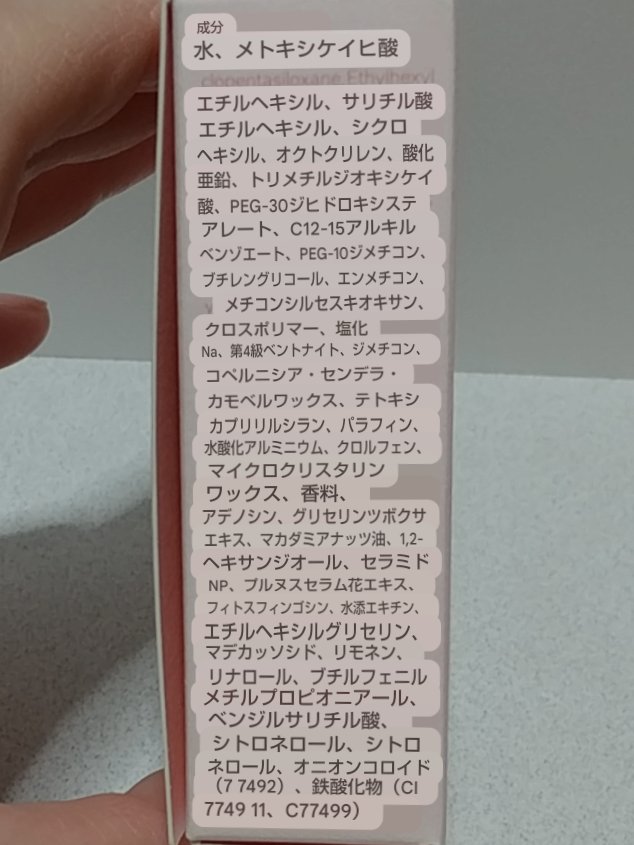 成分
水、メトキシケイヒ酸
clopentasiloxane, Ethylhexyl
エチルヘキシル、サリチル酸
エチルヘキシル、シクロ
ヘキシル、オクトクリレン、酸化
亜鉛、トリメチルジオキシケイ
酸、PEG-30ジヒドロキシステ
アレート、C12-15アルキル
ベンゾエート、PEG-10ジメチコン、
ブチレングリコール、エンメチコン、
メチコンシルセスキオキサン、
クロスポリマー、塩化
Na、第4級ベントナイト、ジメチコン、
コペルニシア・センデラ・
カモベルワックス、テトキシ
カプリリルシラン、パラフィン、
水酸化アルミニウム、クロルフェン、
マイクロクリスタリン
ワックス、香料、
アデノシン、グリセリンツボクサ
エキス、マカダミアナッツ油、1,2-
ヘキサンジオール、セラミド
NP、プルヌスセラム花エキス、
フィトスフィンゴシン、水添エキチン、
エチルヘキシルグリセリン、
マデカッソシド、リモネン、
リナロール、ブチルフェニル
メチルプロピオニアール、
ベンジルサリチル酸、
シトロネロール、シトロ
ネロール、オニオンコロイド
（7 7492）、鉄酸化物（CI
7749 11、C77499）